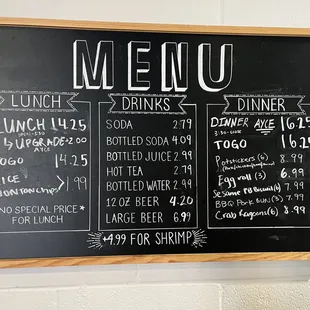 MENU
LUNCH
LUNCH 14.25
UPGRADE +2.00
AYCE
TOGO 14.25
RICE
WONTON CHIPS 1.99
NO SPECIAL PRICE
FOR LUNCH
DRINKS
SODA 2.79
BOTTLED SODA 4.09
BOTTLED JUICE 2.99
HOT TEA 2.79
BOTTLED WATER 2.99
12 OZ BEER 4.20
LARGE BEER 6.99
+4.99 FOR SHRIMP
DINNER
DINNER AYCE 16.25
TOGO 16.25
Potstickers (6) 8.99
Egg roll (3) 6.99
Sesame PB Biscuits (6) 7.99
BBQ Pork Bun (3) 7.99
Crab Ragoons (6) 8.99